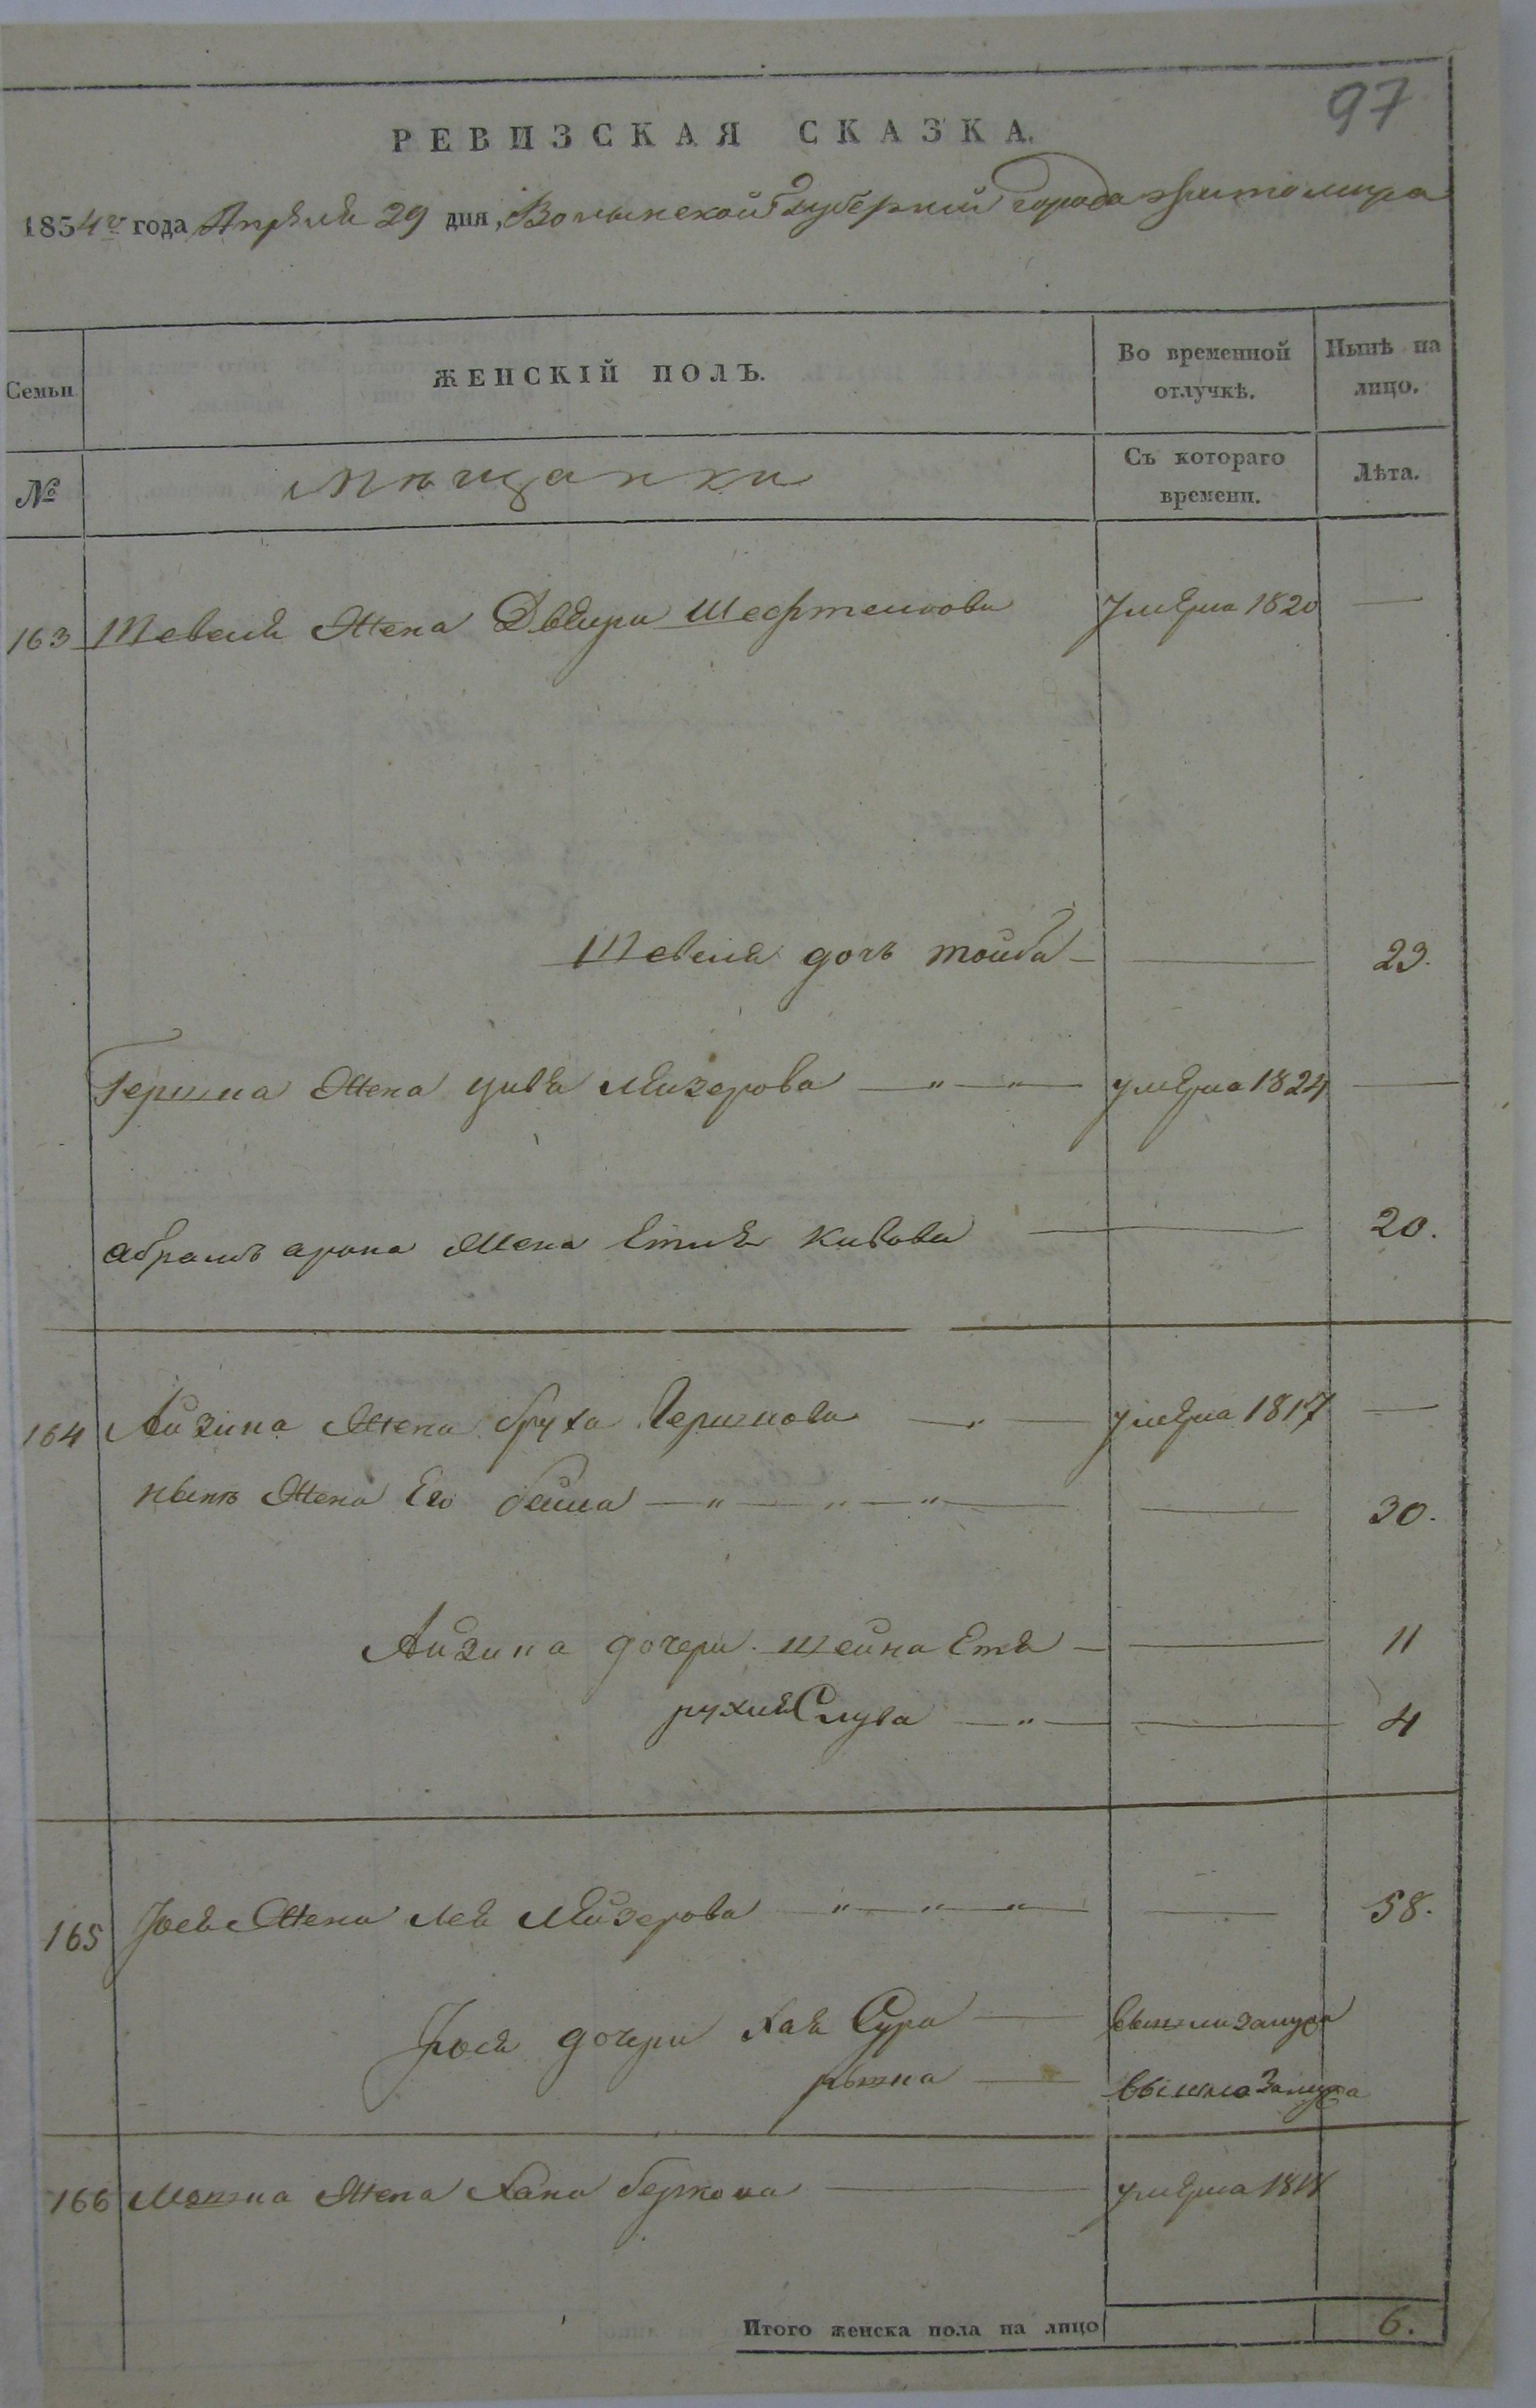 97
РЕВИЗСКАЯ СКАЗКА.
1854го года Апрѣля 29 дня, Волынской Губерніи города Житомира
Семьи ЖЕНСКІЙ ПОЛЪ. Во временной отлучкѣ. Нынѣ на лицо.
№ Мѣщанки Съ котораго времени. Лѣта.
163 Тевеля жена Двейра Шефтелiова умерла 1820 —
Тевеля дочь тойба — — 23.
Гершка жена цивя Лейзерова — " — " — умерла 1824 —
абрамъ арона жена Етля Кивова — 20.
164 Айзика жена бруха Гершкова — " — умерла 1817 —
нынѣ жена Его бейла — " — " — " — — 30.
Айзика дочери шейна Етя — — 11
рухля Слува — " — — 4
165 Iося жена лея Лейзерова " — " — " — — 58.
Iося дочери хая Сура — вышла замужъ
рытка — вышла замужъ
166 Мошка жена хана беркова — умерла 1818
Итого женска пола на лицо 6.